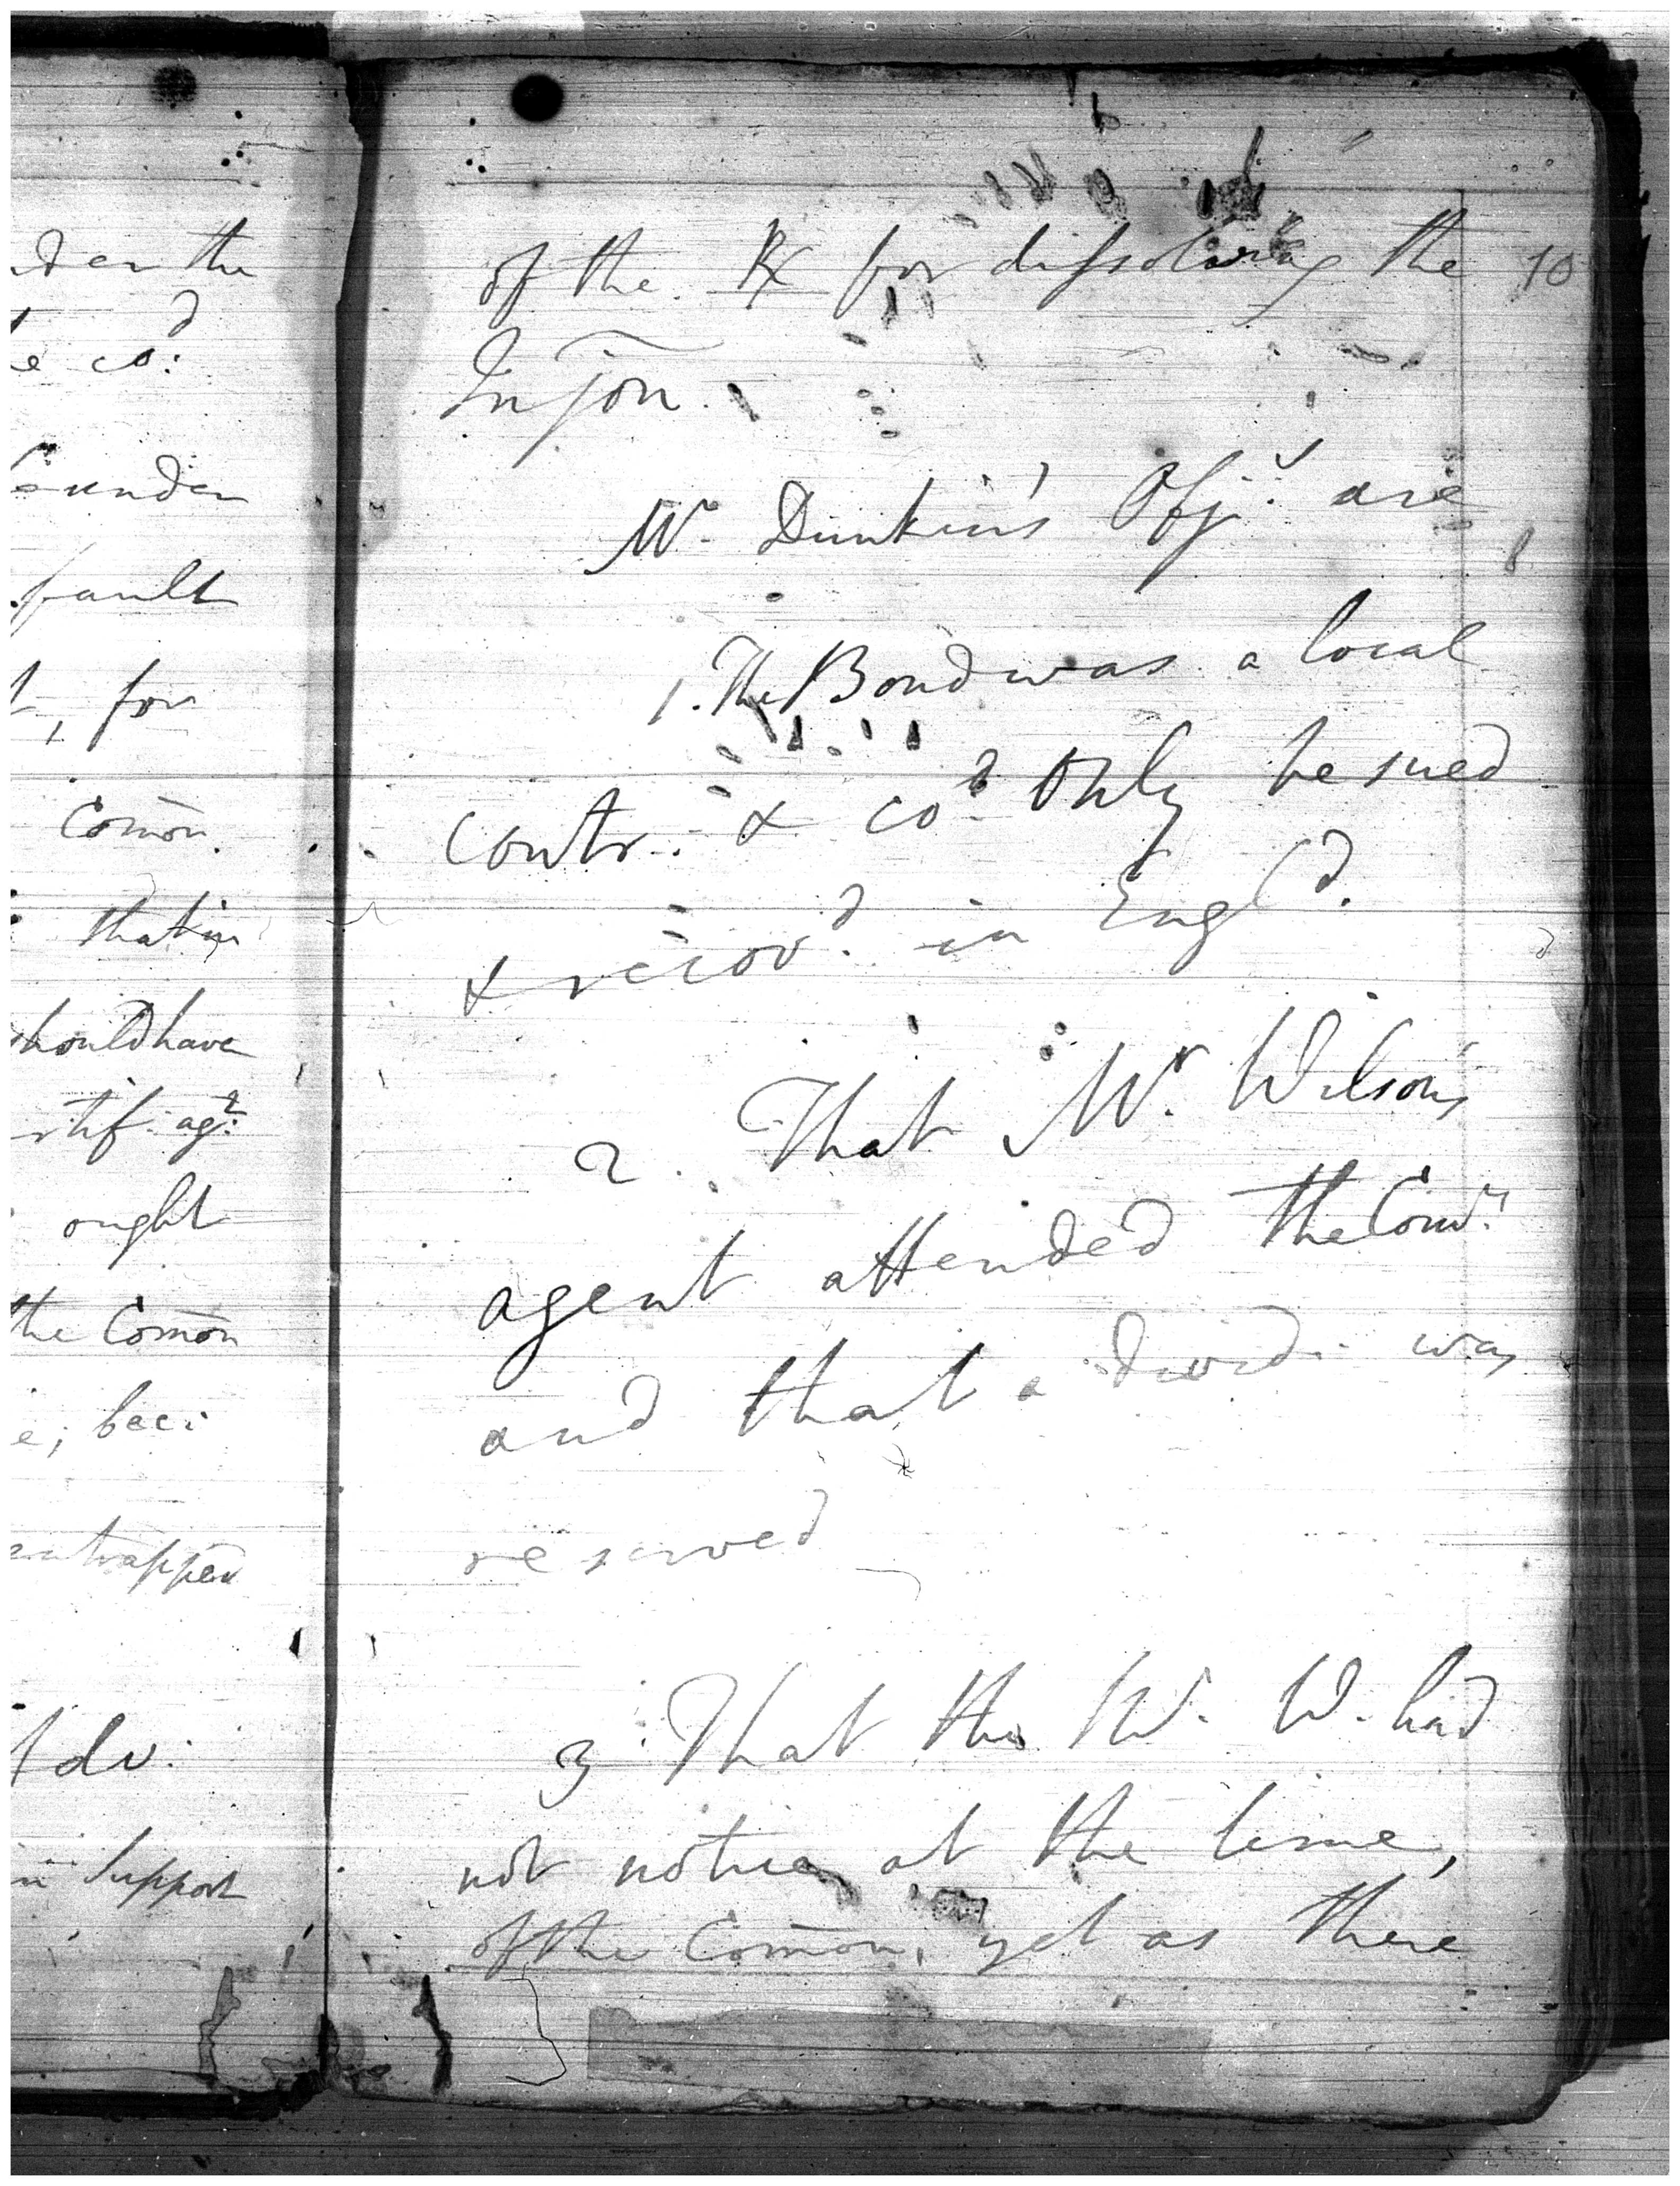 der the
e co:d
under
fault
, for
Comōn.
that in
should have
rtif. agt
ought
the Comōn
e; bec:
entrapped
Adv:
in Support
of the for dissolving the 10
Injōn.
Mr. Dunkin's Obj:s are
1. The Bond was a local
contr: & cod. only be sued
& recovd. in Engld.
2. That Mr. Wilson's
agent attended the Comrs
and that a divid: was
reserved
3. That tho Mr. W. had
not notice at the time,
of the Comōn, yet as there